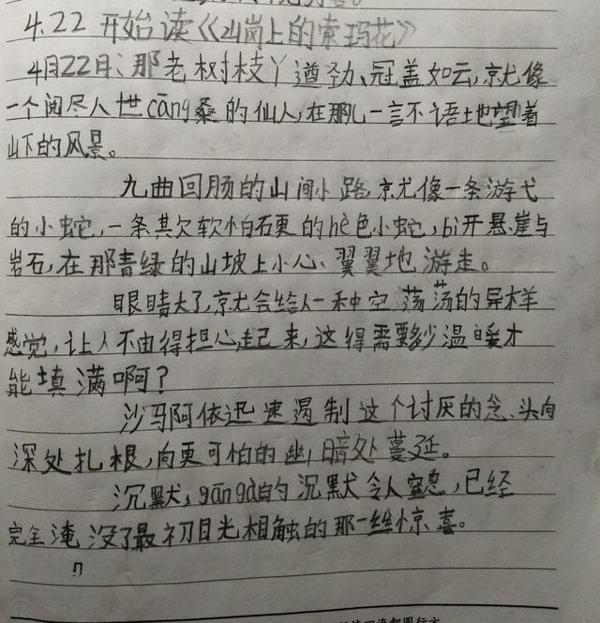 4.22 开始读《山岗上的索玛花》
4月22日、那老树枝丫遒劲、冠盖如云,就像
一个阅尽人世cāng桑的仙人,在那儿一言不语地望着
山下的风景。
九曲回肠的山间小路就像一条游弋
的小蛇,一条欺软怕硬的hè色小蛇,bì开悬崖与
岩石,在那青绿的山坡上小心翼翼地游走。
眼睛大了,就会给人一种空荡荡的异样
感觉,让人不由得担心起来,这得需要多少温暖才
能填满啊?
沙马阿依迅速遏制这个讨厌的念头向
深处扎根,向更可怕的幽暗处蔓延。
沉默,gāngà的沉默令人窒息,已经
完全淹没了最初目光相触的那一丝惊喜。